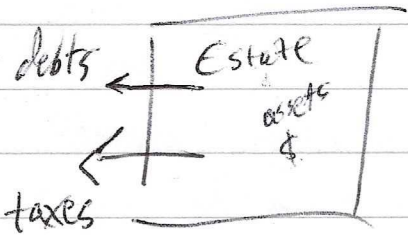 debts
Estate
assets
$
taxes